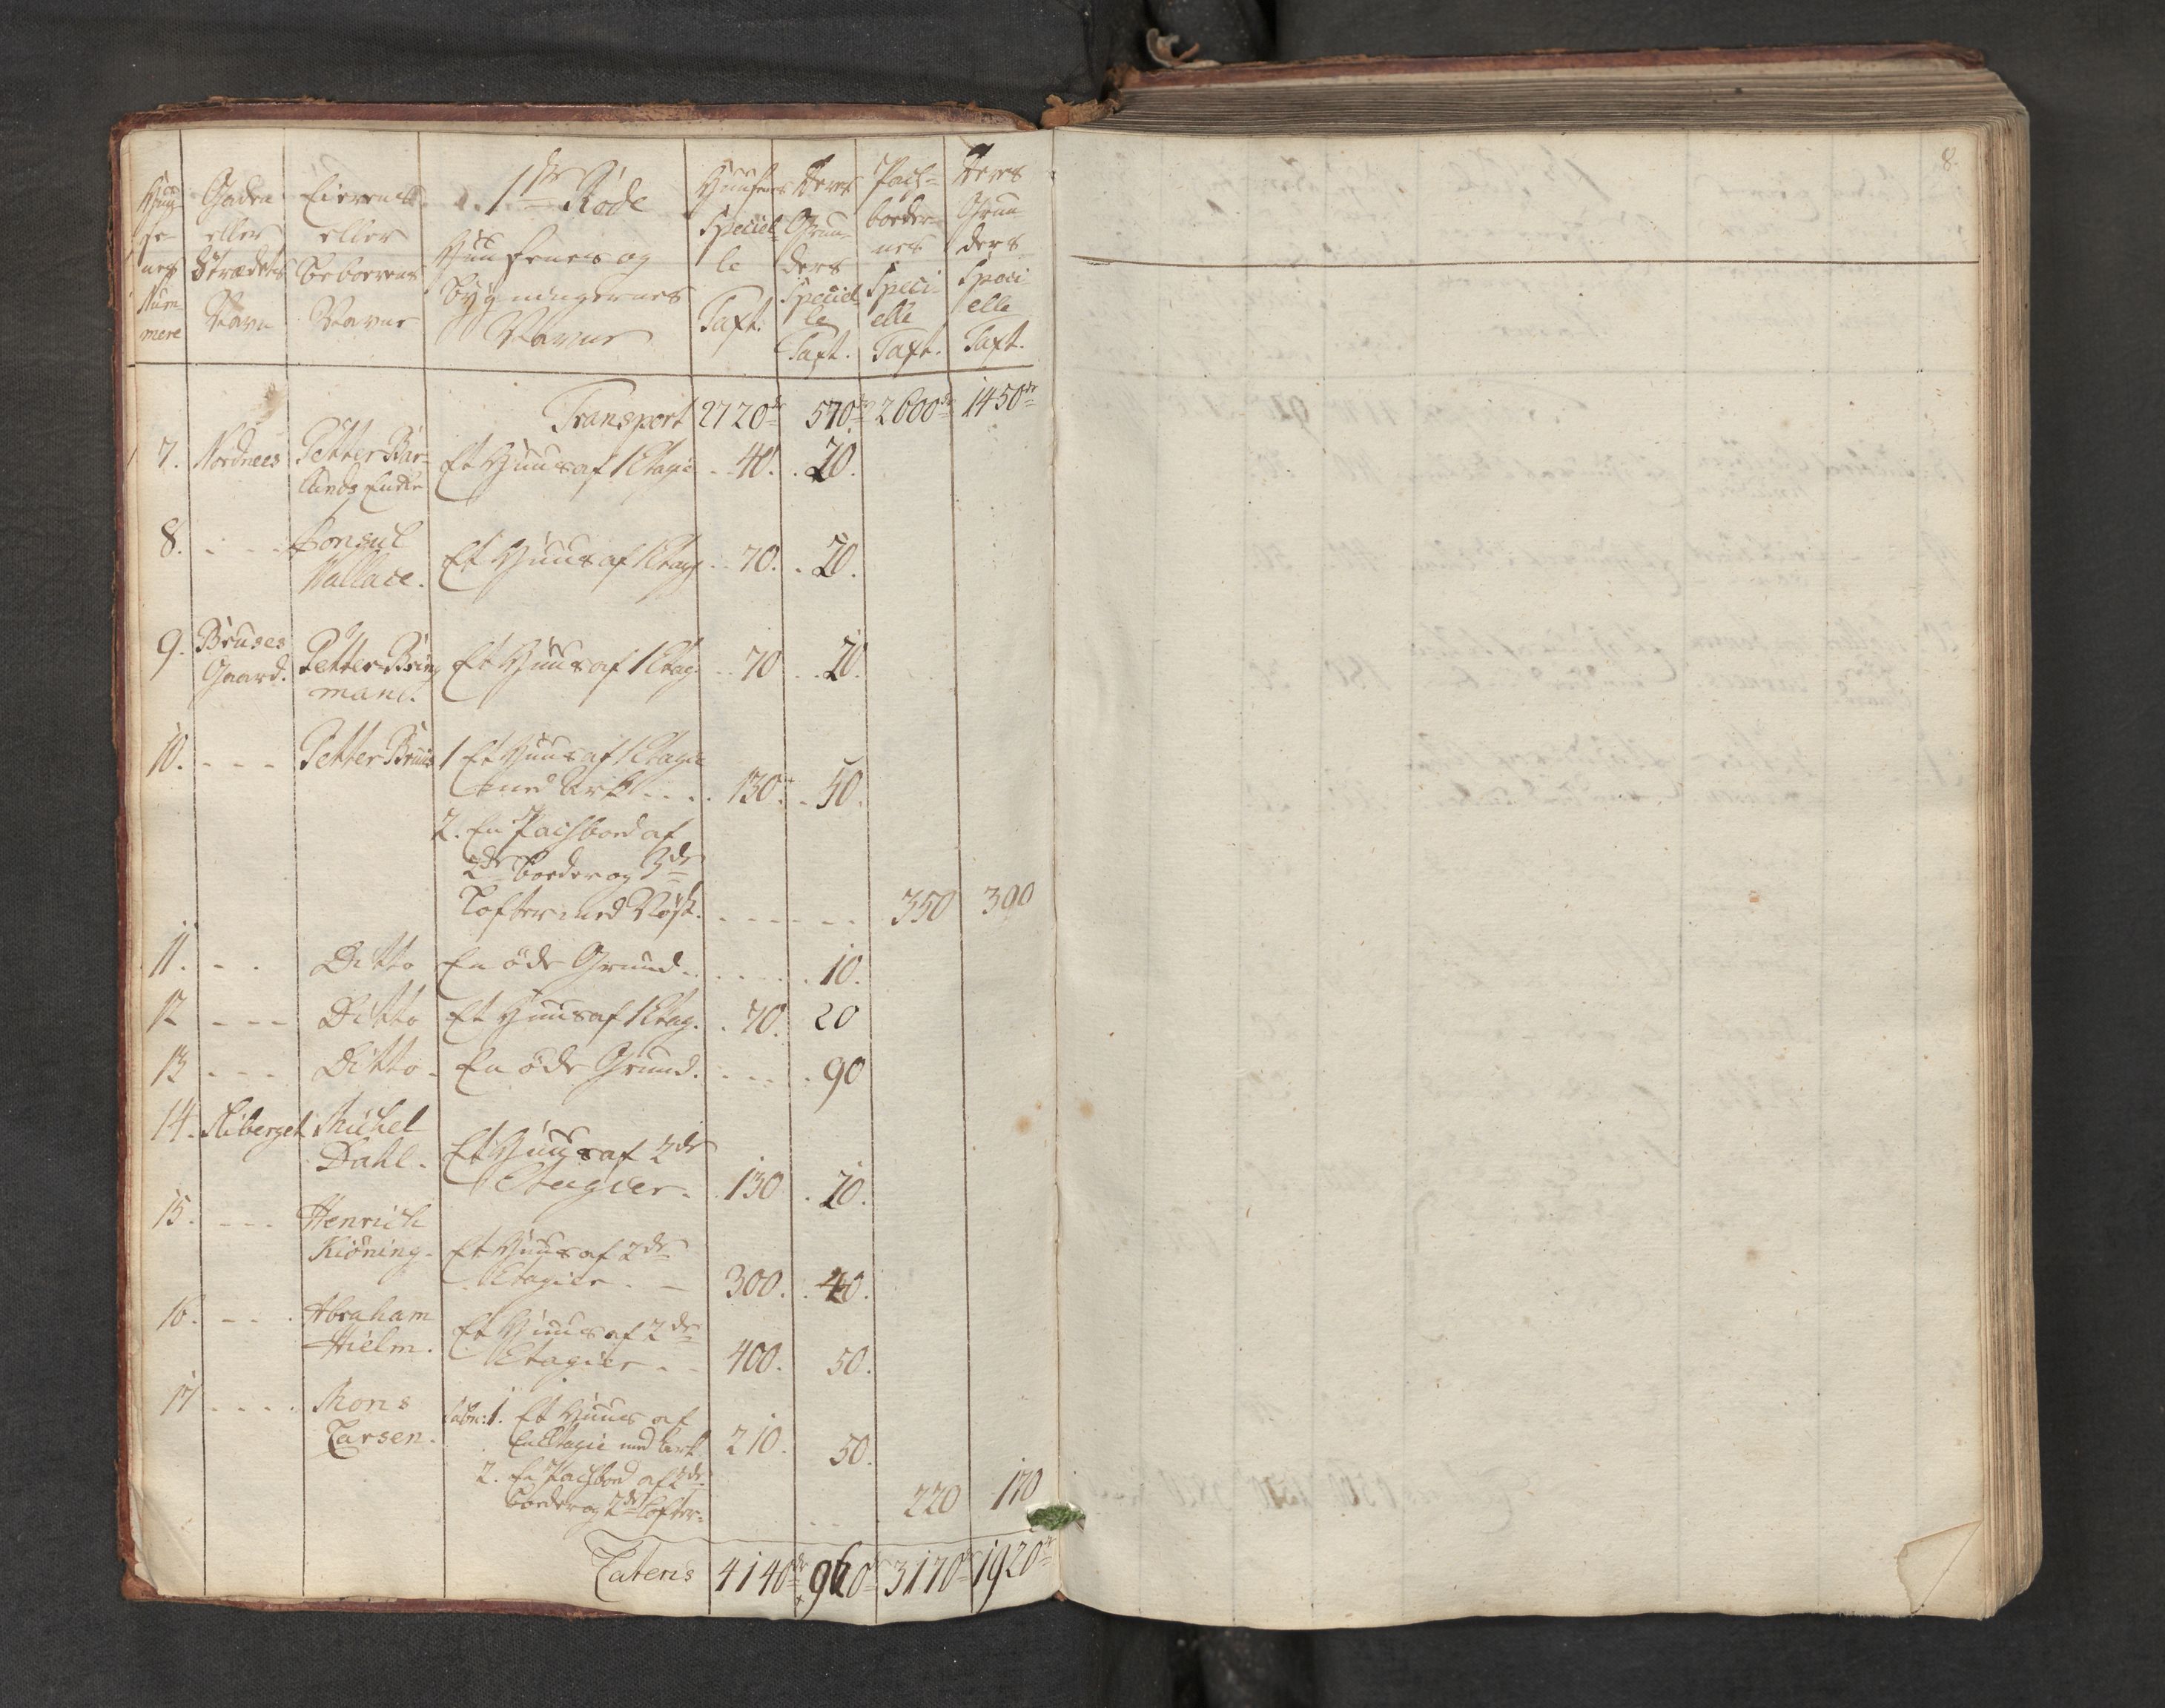 8.
1ste Rode
Huu-
se-
nes
Num-
mere
Gaden
eller
Strædets
Navn
Eierens
eller
Beboerens
Navne
Huusenes og
Bygningernes
Navne
Huusenes
Speciel-
le
Taxt.
Deres
Grun-
ders
Speciel-
le
Taxt.
Pach-
boeder-
nes
Speci-
elle
Taxt.
Deres
Grun-
ders
Speci-
elle
Taxt.
Transport 2720 570 2600 1450
7. Nordnees Petter Bär-
lands Enke Et Huus af 1 Etagie 40. 20.
8. - - - Consul
Wallace. Et Huus af 1 Etag 70. 20.
9. Bruses
Gaard. Petter Bring
mand. Et Huus af 1 Etag 70 20.
10. - - - Petter Bruus 1 Et Huus af 1 Etagie
med Ark . . . 130. 50.
2. En Pachboed af
2de Boeder og 3de
Lofter med Nøst. - - - - - 350 390
11. - - Ditto En øde Grund. . . . 10.
12 - - - Ditto Et Huus af 1 Etag. 70. 20
13 - - - Ditto - En øde Grund. - - - 90
14. Fliberget Michel
Dahl. Et Huus af 2de
Etagier. 130 20.
15. - - - Henrich
Kiöning. Et Huus af 2de
Etagier. - 300. 40.
16. - - . Abraham
Hielm. Et Huus af 2de
Etagier - - 400. 50.
17 . . . . Mons
Larsen. 1. Et Huus af
En Etagie med Ark 210. 50.
2. En Pachboed af 2de
Boeder og 2de Lofter- 220 170
Lateris 4140 960 3170 1920